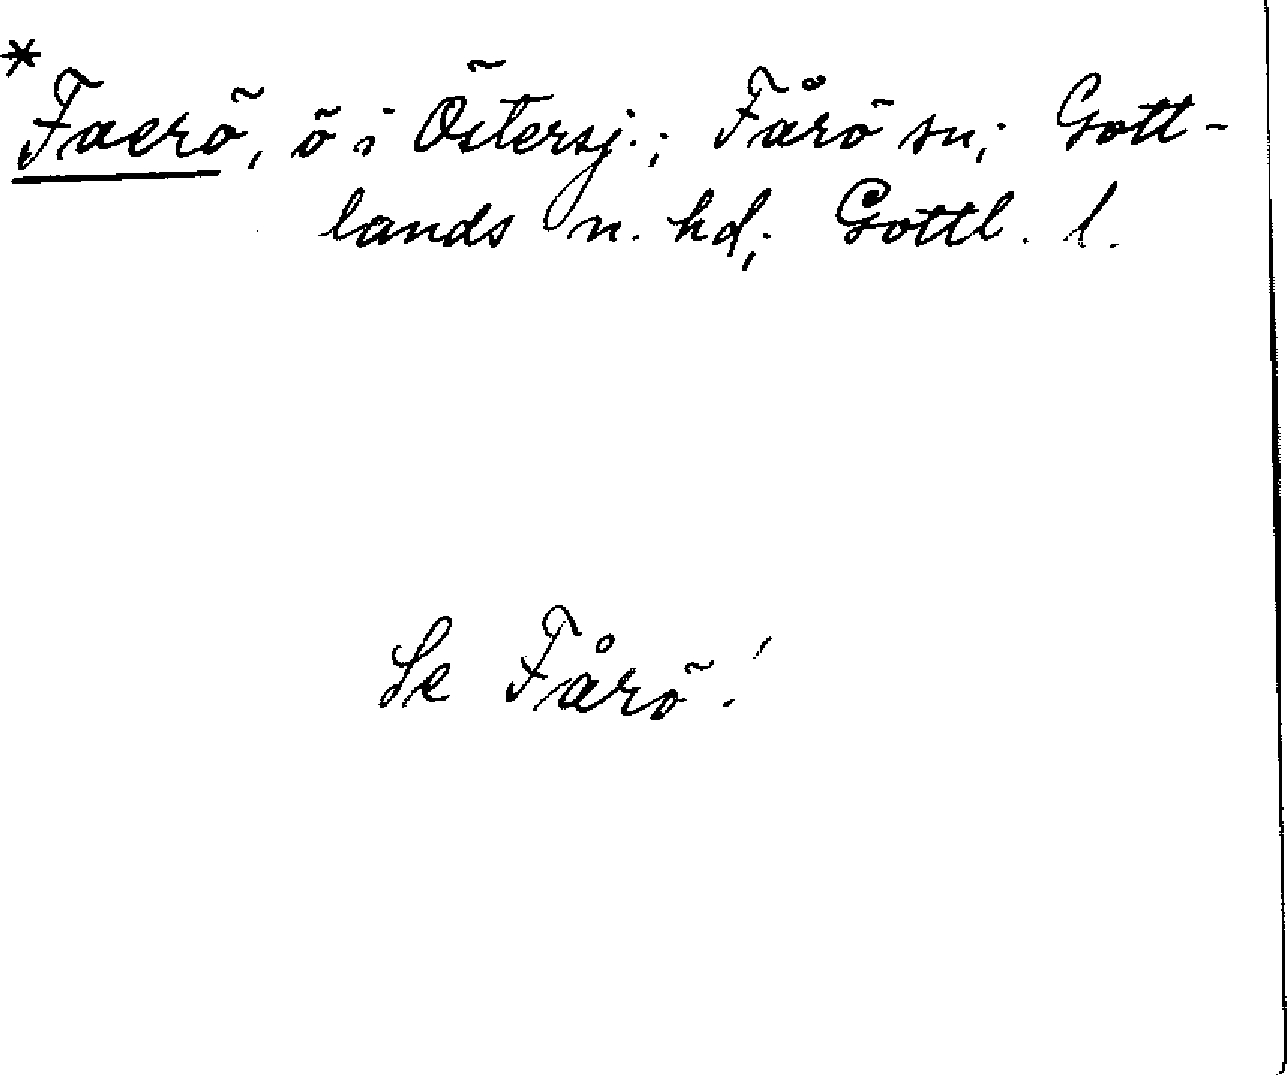 *Faerö, ö i Östersj.; Fårö sn; Gott-
lands n. hd; Gottl. l.
Se Fårö!